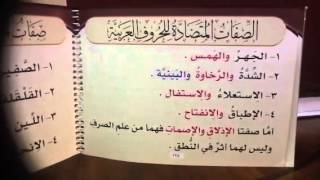 الصفات المتضادة للحروف العربية
١- الجَهرُ والهَمس.
٢- الشِّدَّةُ والرَّخاوةُ والبَينِيَّة.
٣- الاستعلاءُ والاستفال.
٤- الإطباقُ والانفتاح.
أمَّا صفتا الإذلاقِ والإصماتِ فهما من علم الصرف
وليس لهما أثرٌ في النُّطق.
صفات
١- الصَّفير
٢- القلقلة
٣- اللِّين